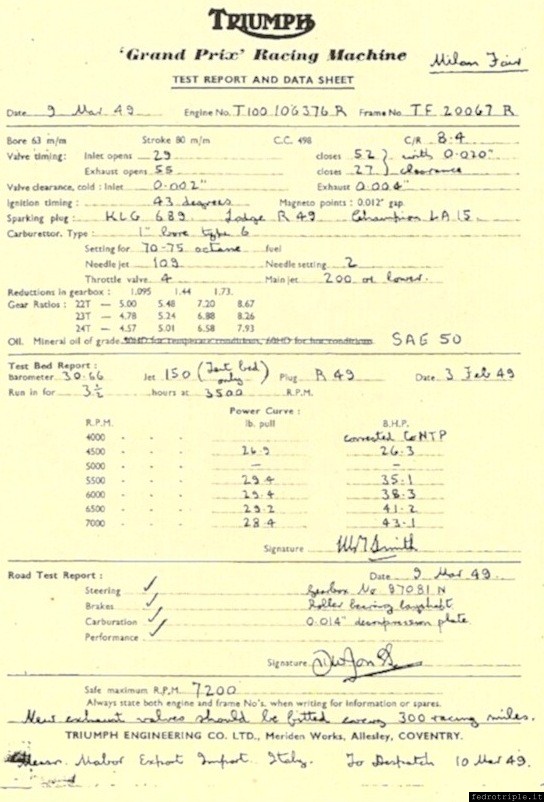 TRIUMPH
'Grand Prix' Racing Machine
Milan Fair
TEST REPORT AND DATA SHEET
Date 9 Mar 49 Engine No. T100 106376 R Frame No TF 20067 R
Bore 63 m/m Stroke 80 m/m C.C. 498 C/R 8.4
Valve timing: Inlet opens 29 closes 52 } with 0.020"
Exhaust opens 55 closes 27 } clearance
Valve clearance, cold : Inlet 0.002" Exhaust 0.004"
Ignition timing : 43 degrees Magneto points : 0.012" gap
Sparking plug : KLG 689. Lodge R 49 Champion LA 15.
Carburettor, Type : 1" bore type 6
Setting for 70-75 octane fuel
Needle jet 109 Needle setting 2
Throttle valve 4 Main jet 200 or lower.
Reductions in gearbox : 1.095 1.44 1.73.
Gear Ratios : 22T — 5.00 5.48 7.20 8.67
23T — 4.78 5.24 6.88 8.26
24T — 4.57 5.01 6.58 7.93
Oil. Mineral oil of grade 50HD for temperate conditions, 60HD for hot conditions. SAE 50
Test Bed Report :
Barometer 30.66 Jet 150 (Test bed only) Plug R 49 Date 3 Feb 49
Run in for 3½ hours at 3500 R.P.M.
Power Curve :
R.P.M. lb. pull B.H.P.
4000 corrected to NTP
4500 26.9 26.3
5000 — —
5500 29.4 35.1
6000 29.4 38.3
6500 29.2 41.2
7000 28.4 43.1
Signature Smith
Road Test Report : Date 9 Mar 49.
Steering ✓ Gearbox No 97081 N
Brakes ✓ Roller bearing layshaft
Carburation ✓ 0.014" decompression plate
Performance ✓
Signature
Safe maximum R.P.M. 7200
Always state both engine and frame No's. when writing for information or spares.
New exhaust valves should be fitted every 300 racing miles.
TRIUMPH ENGINEERING CO. LTD., Meriden Works, Allesley, COVENTRY.
Messrs. Mabor Export Import Italy. To Despatch 10 Mar 49.
fedrotriple.it